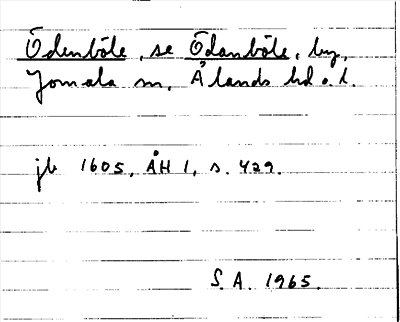 Ödenböle, se Ödanböle, by,
Jomala sn, Ålands hd o. l.
jb 1605, ÅH 1, s. 429.
S.A. 1965.